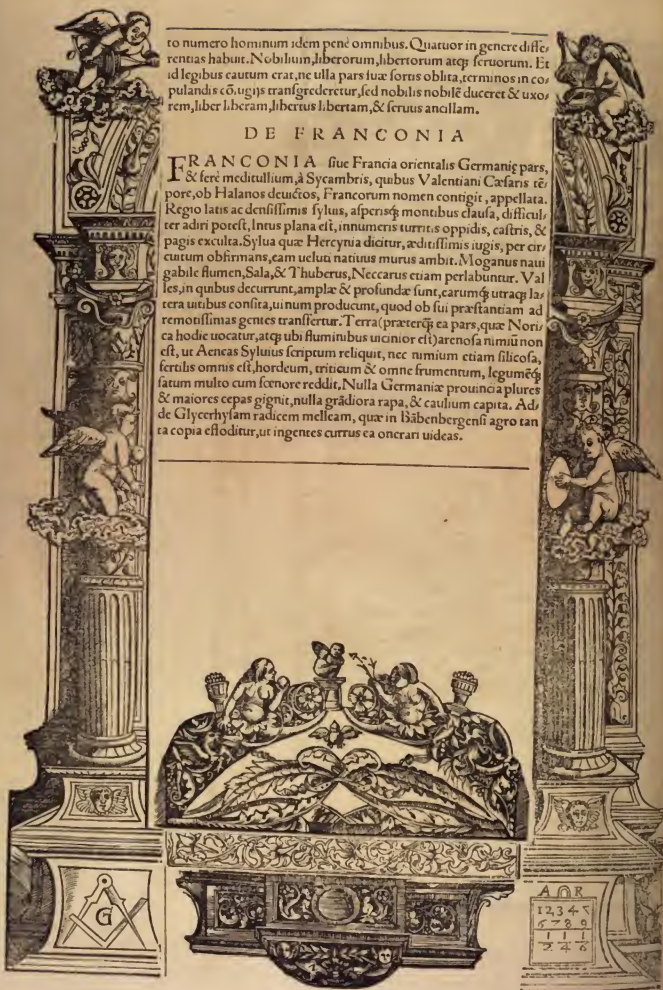 to numero hominum idem penè omnibus. Quatuor in genere diffe/
rentias habuit. Nobilium, liberorum, libertorum atq; seruorum. Et
id legibus cautum erat, ne ulla pars suæ sortis oblita, terminos in co/
pulandis cō.ugijs transgrederetur, sed nobilis nobilē duceret & uxo/
rem, liber liberam, libertus libertam, & seruus ancillam.
DE FRANCONIA
FRANCONIA siue Francia orientalis Germanię pars,
& ferè meditullium, à Sycambris, quibus Valentiani Cæsaris tē/
pore, ob Halanos deuictos, Francorum nomen contigit, appellata.
Regio latis ac densissimis syluis, asperisq; montibus clausa, difficul/
ter adiri potest, Intus plana est, innumeris turritis oppidis, castris, &
pagis exculta. Sylua quæ Hercynia dicitur, æditissimis iugis, per cir/
cuitum obfirmans, eam ueluti natiuus murus ambit. Moganus naui
gabile flumen, Sala, & Thuberus, Neccarus etiam perlabuntur. Val
les, in quibus decurrunt, amplæ & profundæ sunt, earumq; utraq; la/
tera uitibus consita, uinum producunt, quod ob sui præstantiam ad
remotissimas gentes transfertur. Terra (præterq; ea pars, quæ Nori/
ca hodie uocatur, atq; ubi fluminibus uicinior est) arenosa nimiū non
est, ut Aeneas Syluius scriptum reliquit, nec nimium etiam silicosa,
fertilis omnis est, hordeum, triticum & omne frumentum, legumēq;
satum multo cum fœnore reddit. Nulla Germaniæ prouincia plures
& maiores cepas gignit, nulla grādiora rapa, & caulium capita. Ad/
de Glycerhysam radicem melleam, quæ in Bābenbergensi agro tan
ta copia effoditur, ut ingentes currus ea onerari uideas.
G
A R
1 2 3 4 5
6 7 8 9
1 1 1
2 4 6